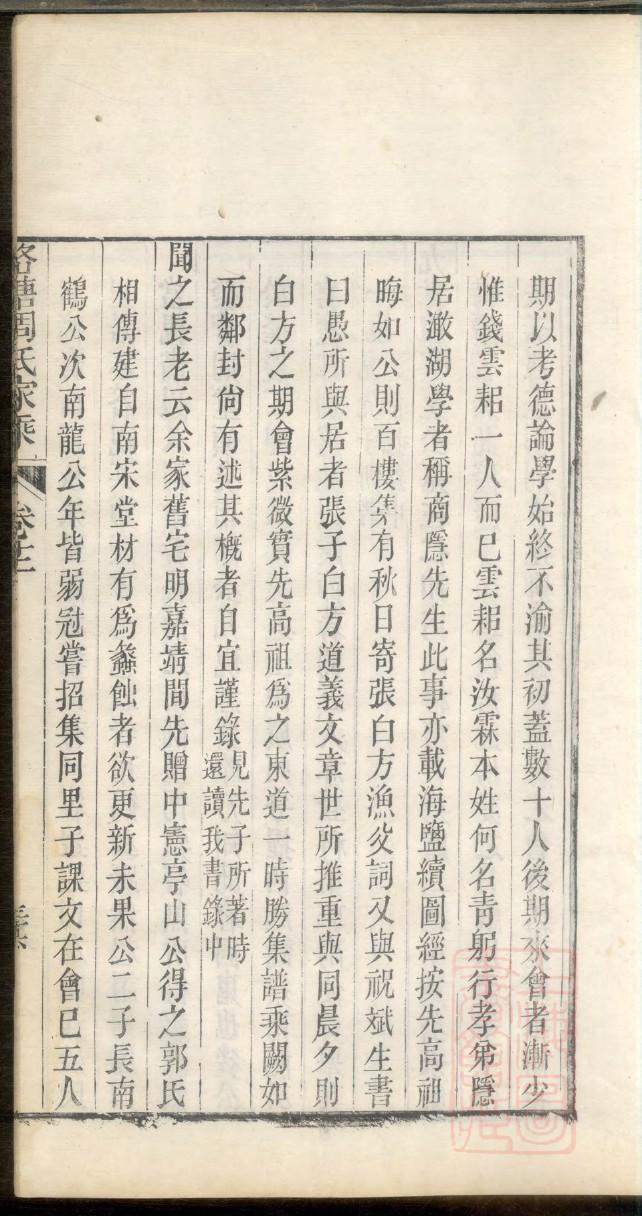 期以考德論學始終不渝其初蓋數十人後期來會者漸少
惟錢雲耜一人而已雲耜名汝霖本姓何名青躬行孝弟隱
居澉湖學者稱商隱先生此事亦載海鹽續圖經按先高祖
晦如公則百樓集有秋日寄張白方漁父詞又與祝斌生書
曰愚所與居者張子白方道義文章世所推重與同晨夕則
白方之期會紫微實先高祖爲之東道一時勝集譜乘闕如
而鄰封尙有述其概者自宜謹錄見先子所著時還讀我書錄中
聞之長老云余家舊宅明嘉靖間先贈中憲亭山公得之郭氏
相傳建自南宋堂材有爲蠡蝕者欲更新未果公二子長南
鶴公次南龍公年皆弱冠嘗招集同里子課文在會已五人
周氏家乘